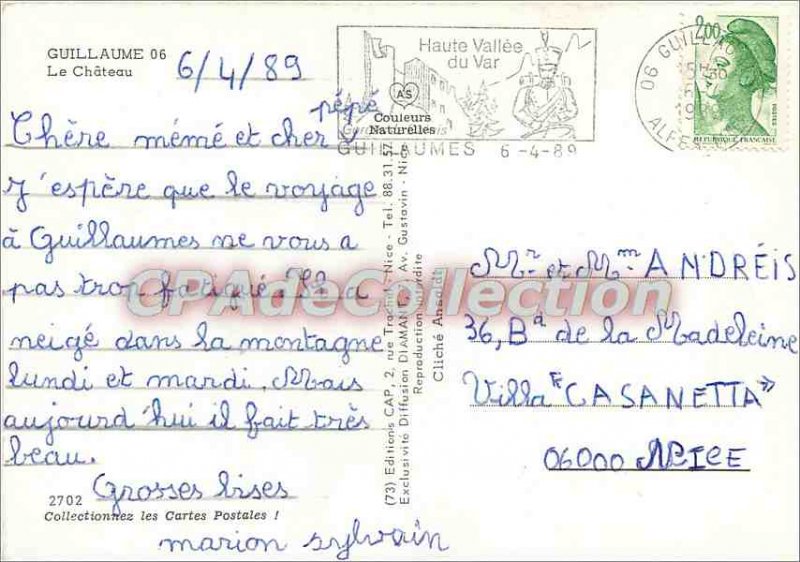 GUILLAUME 06
Le Château
6/4/89
Chère mémé et cher pépé
J'espère que le voyage
à Guillaumes ne vous a
pas trop fatigué. Il a
neigé dans la montagne
lundi et mardi. Mais
aujourd'hui il fait très
beau.
Grosses bises
marion sylvain
2702
Collectionnez les Cartes Postales !
Haute Vallée
du Var
AS
Couleurs
Naturelles
GUILLAUMES 6-4-89
(73) Editions CAP, 2, rue - Nice - Tel. 88.31.57
Exclusivité Diffusion DIAMANT, 7 Av. Gustavin - Nice
Reproduction interdite
Cliché
CPAdeCollection
2,00
POSTES
REPUBLIQUE FRANCAISE
06 GUILLAU
ALPES
Mr et Mm ANDRÉIS
36, Bd de la Madeleine
Villa "CASANETTA"
06000 NICE